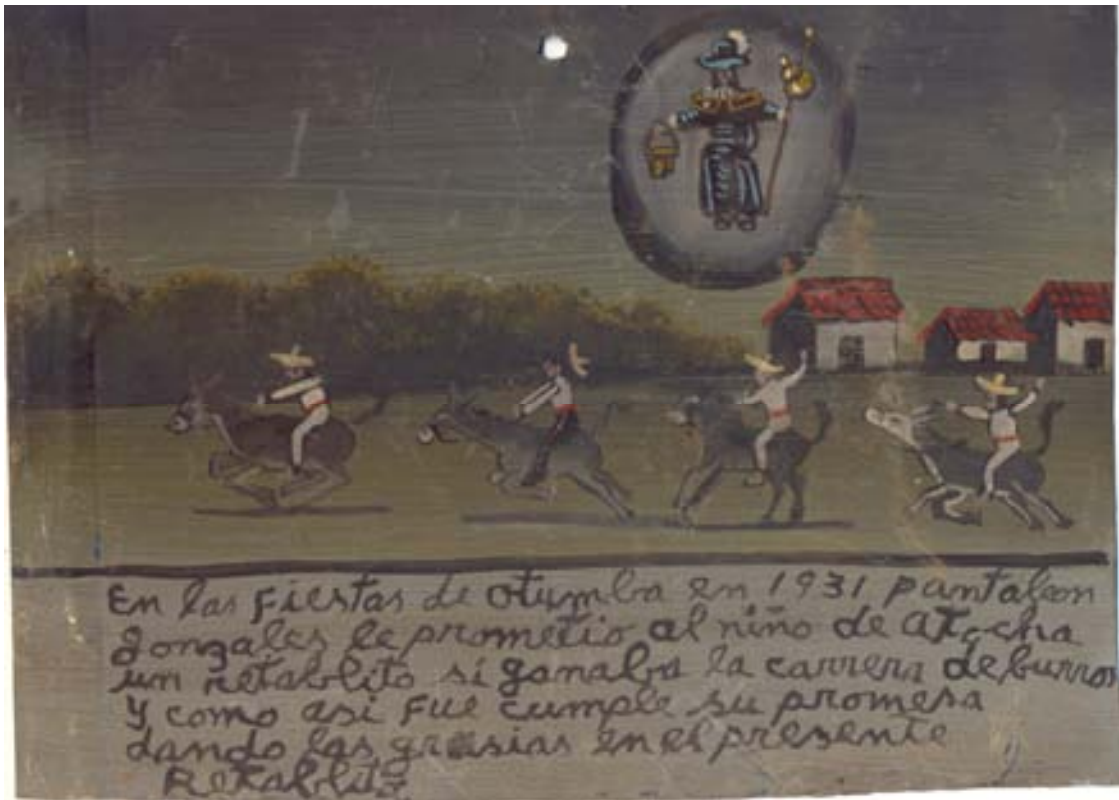 En las Fiestas de otumba en 1931 pantaleon
gonzales le prometio al niño de atocha
un retablito si ganaba la carrera de burros
y como asi Fue cumple su promesa
dando las grasias en el presente
Retablito